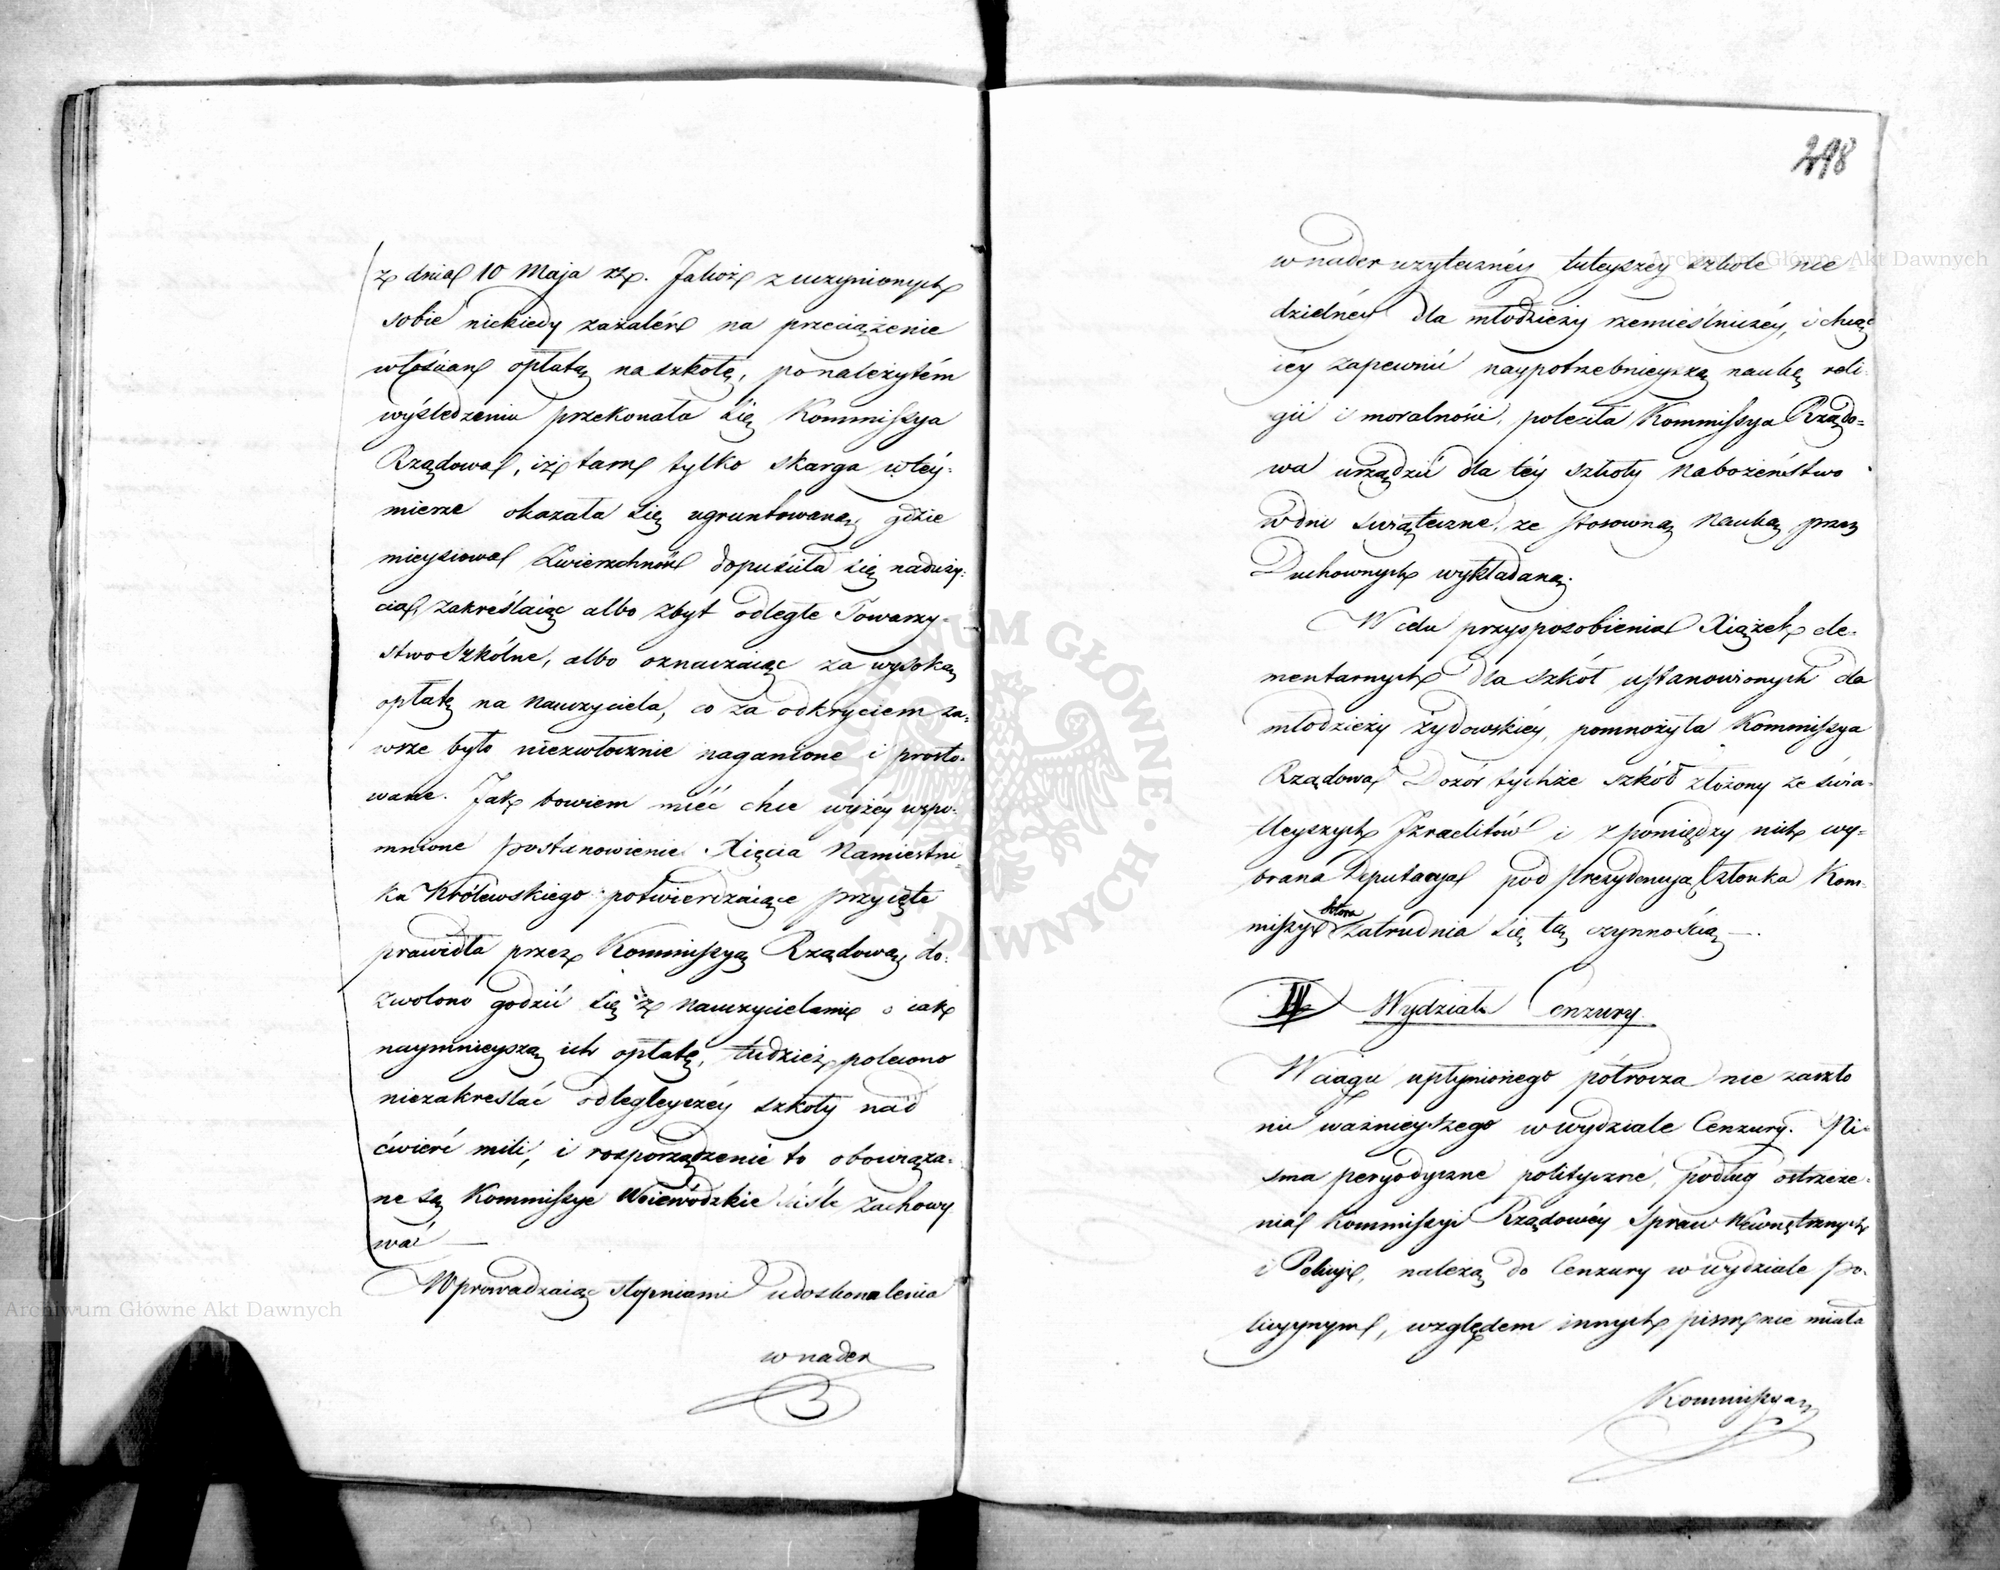 z dnia 10 Maja rż. Jakoż z uczynionych
sobie niekiedy zażaleń na przeciążenie
włościan opłatą na szkołę, po należytém
wyśledzeniu przekonała się Kommissya
Rządowa, iż tam tylko skarga w téy-
mierze okazała się ugruntowaną, gdzie
mieyscowa Zwierzchność dopuściła się naduży-
cia, zakreślaiąc albo zbyt odległe Towarzy-
stwo Szkólne, albo oznaczaiąc za wysoką
opłatę na Nauczyciela, co za odkryciem za-
wsze było niezwłocznie naganione i prosto-
wane. Jak bowiem mieć chce wyżéy wspo-
mnione postanowienie Xięcia Namiestni-
ka Królewskiego potwierdzaiące przyięte
prawidła przez Kommissyą Rządową, do-
zwolono godzić się z Nauczycielami o iak
naymnieyszą ich opłatę, tudzież polecono
niezakreślać odlegleyszéy szkoły nad
ćwierć mili, i rozporządzenie to obowiąza-
ne są Kommissye Woiewódzkie ściśle zachowy
wać —
Wprowadzaiąc stopniami udoskonalenia
w nader
298
w nader użyteczney tuteyszéy szkole nie
dzielnéy dla młodzieży rzemieślniczéy, i chcąc
iéy zapewnić naypotrzebnieyszą naukę reli-
gii i moralności, poleciła Kommissya Rządo=
wa urządzić dla téy szkoły Nabożeństwo
w dni świąteczne, ze stosowną Nauką, przez
Duchownych wykładaną.
W celu przysposobienia Xiążek ele-
mentarnych dla szkół ustanowionych dla
młodzieży żydowskiéy, pomnożyła Kommissya
Rządowa Dozór tychże szkół złożony ze świa-
tleyszych Izraelitów i z pomiędzy nich wy-
brana Deputacya pod prezydencyą Członka Kom-
missyi która zatrudnia się tą czynnością —.
IV Wydział Cenzury.
W ciągu upłynionego półrocza nie zaszło
nic ważnieyszego w wydziale Cenzury. Pi-
sma peryodyczne polityczne, podług ostrzeże-
nia Kommissyi Rządowéy Spraw Wewnętrznych
i Policyi, należą do Cenzury w wydziale po-
licyynym, względem innych pism nie miała
Kommissya
ARCHIWUM GŁÓWNE AKT DAWNYCH
Archiwum Główne Akt Dawnych
Archiwum Główne Akt Dawnych